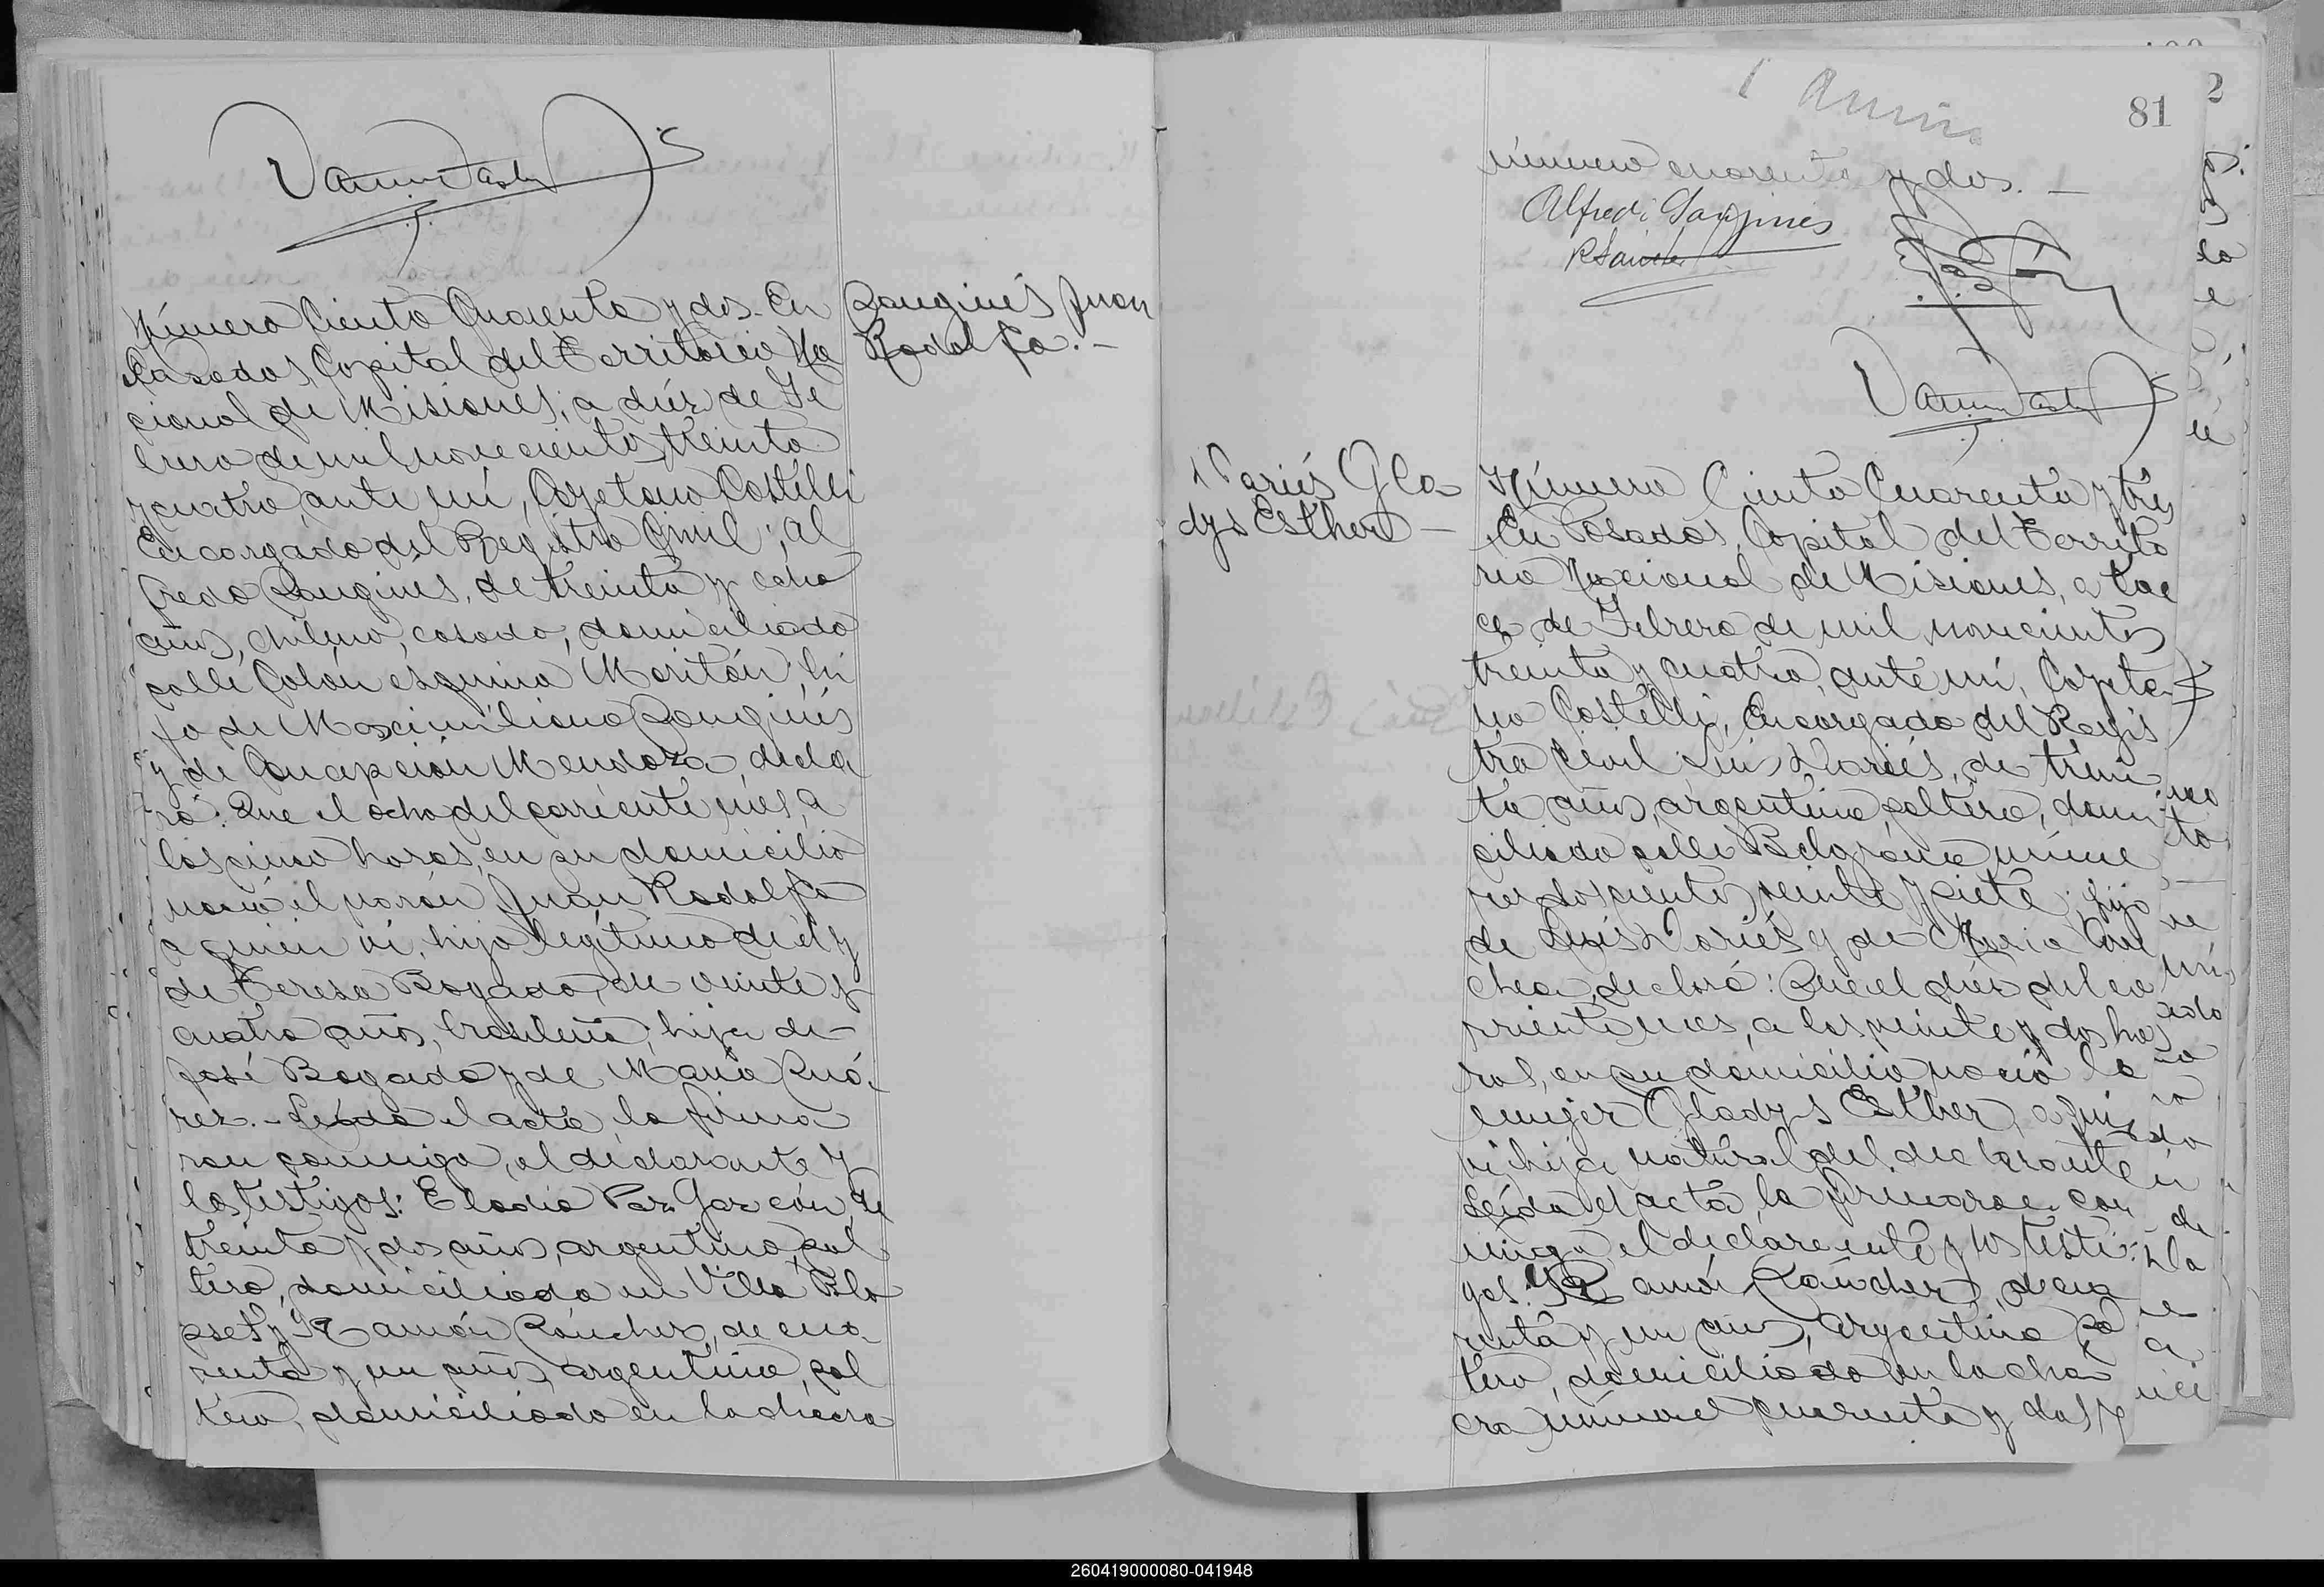 Número Ciento Cuarenta y dos. En
Posadas, Capital del Territorio Na
cional de Misiones, a diéz de Fe
brero de mil novecientos treinta
y cuatro, ante mí, Cayetano Castelli
Encargado del Registro Civil, Al
fredo Sanginés, de treinta y ocho
años, chileno, casado, domiciliado
calle Colón esquina Moritán, hi
jo de Maximiliano Sanginés
y de Concepción Mendoza, decla
ró: Que el ocho del corriente mes, a
las cinco horas, en su domicilio
nació el varón Juan Rodolfo
a quien ví, hijo legítimo de él y
de Teresa Bogado, de veinte y
cuatro años, brasilera, hija de
José Bogado y de María Suá
rez. - Leída el acta, la firma
ron conmigo, el declarante y
los testigos: Eladio Paz Garzón, de
treinta y dos años, argentino, sol
tero, domiciliado en Villa Blo
sset y Ramón Sánchez, de cua
renta y un años, argentino, sol
tero, domiciliado en la chacra
Sanginés Juan
Rodolfo. -
81
número cuarenta y dos. -
Alfredo Sanginés
R Sánchez
Gla
dys Esther -
Número Ciento Cuarenta y trés
En Posadas, Capital del Territo
rio Nacional de Misiones, a doc
ce de Febrero de mil novecientos
treinta y cuatro, ante mí, Cayeta
no Castelli, Encargado del Regis
tro Civil Luis Dariés, de trein
ta años, argentino, soltero, domi
ciliado calle Belgrano núme
ro doscientos veinte y siete, hijo
de Luis Dariés y de María
chea, declaró: Que el diéz del co
rriente mes, a las veinte y dos ho
ras, en su domicilio nació la
mujer Gladys Esther, a quien
ví, hija natural del declarante
Leída el acta, la firmaron con
migo, el declarante y los testi
gos: Ramón Sánchez, de cua
renta y un años, argentino, sol
tero, domiciliado en la cha
cra número cuarenta y dos, y
260419000080-041948